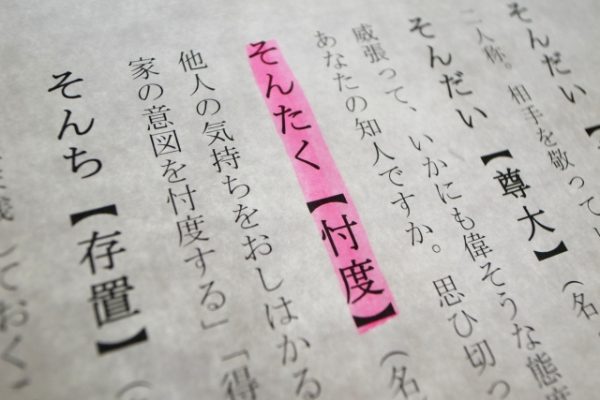 そんだい【
二人称。相手を敬ってい
そんだい【尊大】（名
威張って、いかにも偉そうな態度
あなたの知人ですか。思ひ切っ
そんたく【忖度】（名
他人の気持ちをおしはかる
家の意図を忖度する」「得
そんち【存置】（
しておくこ